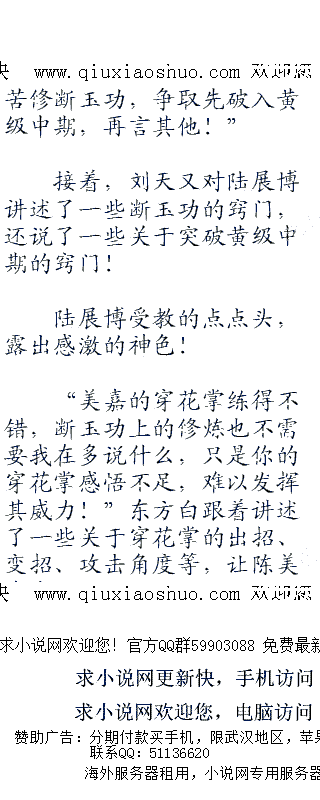 快 www.qiuxiaoshuo.com 欢迎您
苦修断玉功，争取先破入黄
级中期，再言其他！”
接着，刘天又对陆展博
讲述了一些断玉功的窍门，
还说了一些关于突破黄级中
期的窍门！
陆展博受教的点点头，
露出感激的神色！
“美嘉的穿花掌练得不
错，断玉功上的修炼也不需
要我在多说什么，只是你的
穿花掌感悟不足，难以发挥
其威力！”东方白跟着讲述
了一些关于穿花掌的出招、
变招、攻击角度等，让陈美
快 www.qiuxiaoshuo.com 欢迎您
求小说网欢迎您！官方QQ群59903088 免费最新
求小说网更新快，手机访问
求小说网欢迎您，电脑访问
赞助广告：分期付款买手机，限武汉地区，苹果
联系QQ：51136620
海外服务器租用，小说网专用服务器